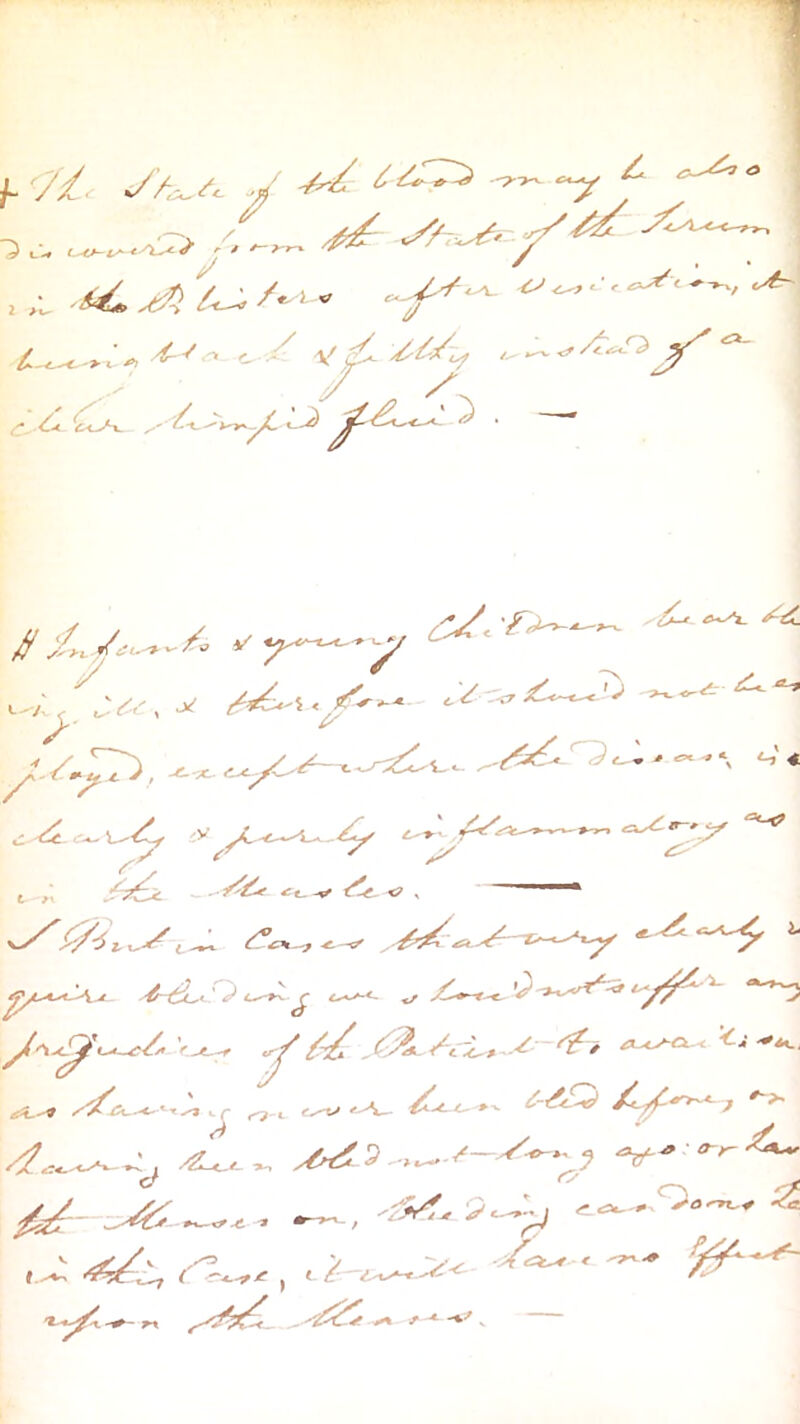 + The State of the blood may be also
discovered from the State of the Serum
in the Blisters after Vesication, it
being black & filthy instead of a
clear limpid fluid. —
# Infants & young Children bear ble
ing ill, & therefore it shou'd not be em
ployed, except where the Disease is
clearly & purely inflammatory as
in the Measles. —
But in Cases that very clearly re
quire bleeding we shou'd not suffer any
prejudices of the Patient to avail: su
as having never been bled before, or
having been bled not long ago: or hav
the Menses on, bleeding can do no
in this Case, it will have no Effect
upon the Menses. —